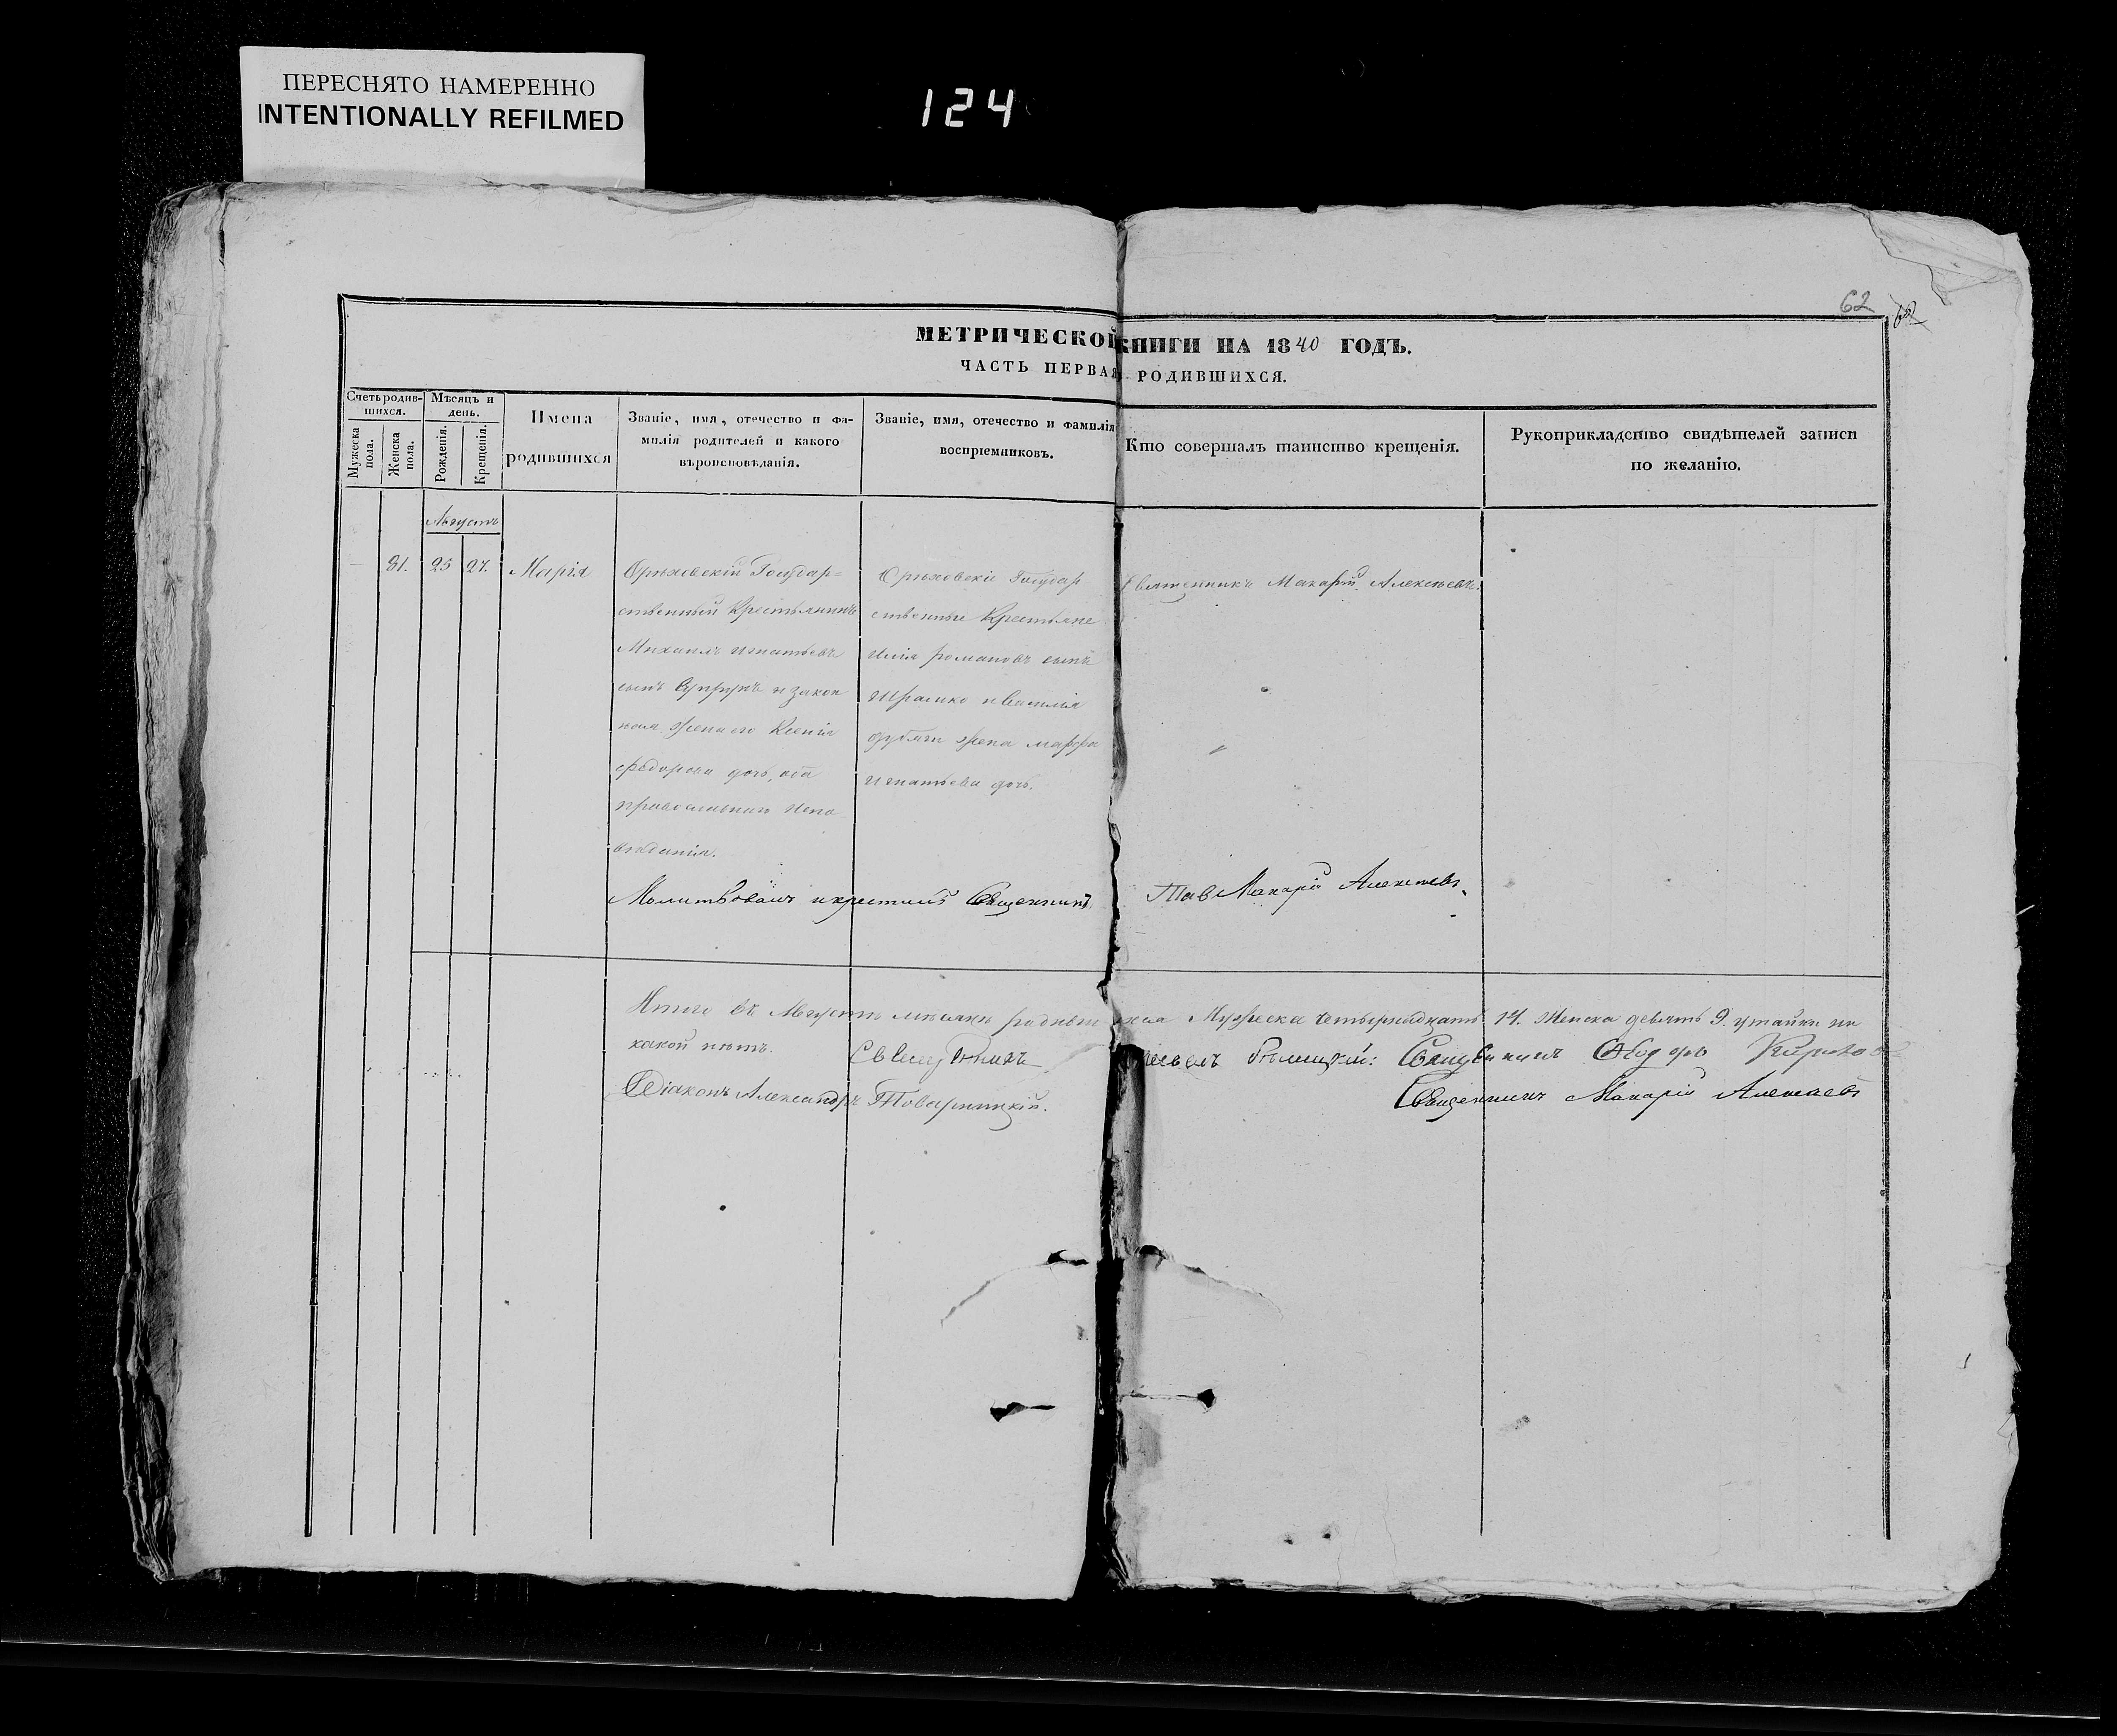 ПЕРЕСНЯТО НАМЕРЕННО
INTENTIONALLY REFILMED
124
62
МЕТРИЧЕСКОЙ КНИГИ НА 1840 ГОДЪ.
ЧАСТЬ ПЕРВАЯ РОДИВШИХСЯ.
Счетъ родив-
шихся.
Мужеска
пола.
Женска
пола.
Мѣсяцъ и
день.
Рожденія.
Крещенія.
Имена
родившихся
Званіе, имя, отечество и фа-
милія родителей и какого
вѣроисповѣданія.
Званіе, имя, отечество и фамилія
воспріемниковъ.
Кто совершалъ таинство крещенія.
Рукоприкладство свидѣтелей записи
по желанію.
Августъ
81. 25 27. Марія
Орѣховскій Государ=
ственный Крестьянинъ
Михаилъ Игнатьевъ
сынъ и закон
ная жена его Ксенія
Федорова дочь, оба
православнаго испо
вѣданія.
Орѣховскіе Государ
ственные Крестьяне
Илія Романовъ сынъ
и Василія
жена Марфа
Игнатьева дочь.
Священникъ Макарій Алексѣевъ.
Молитвовалъ и крестилъ Священникъ Макарій Алексѣевъ
Итого въ Августѣ мѣсяцѣ родившихся Мужеска четырнадцать 14. Женска девять 9. утайки ни
какой нѣтъ.
Священникъ Ѳеодоръ
Діаконъ Александръ Товарницкій.
Священникъ Макарій Алексѣевъ